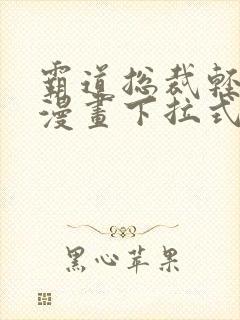 霸道总裁轻
漫畫下拉式
黑心苹果